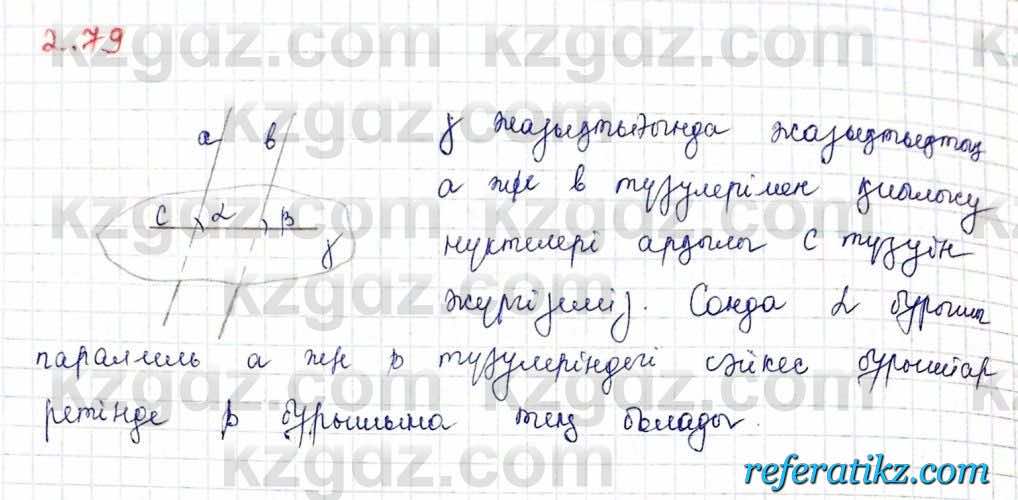 2.79
a b
c α β
γ
γ жазықтығында жазықтықтың
a және b түзулерімен қиылысу
нүктелері арқылы c түзуін
жүргіземіз. Сонда α бұрышы
параллель a және b түзулеріндегі сәйкес бұрыштар
ретінде β бұрышына тең болады.
kzgdz.com
referatikz.com